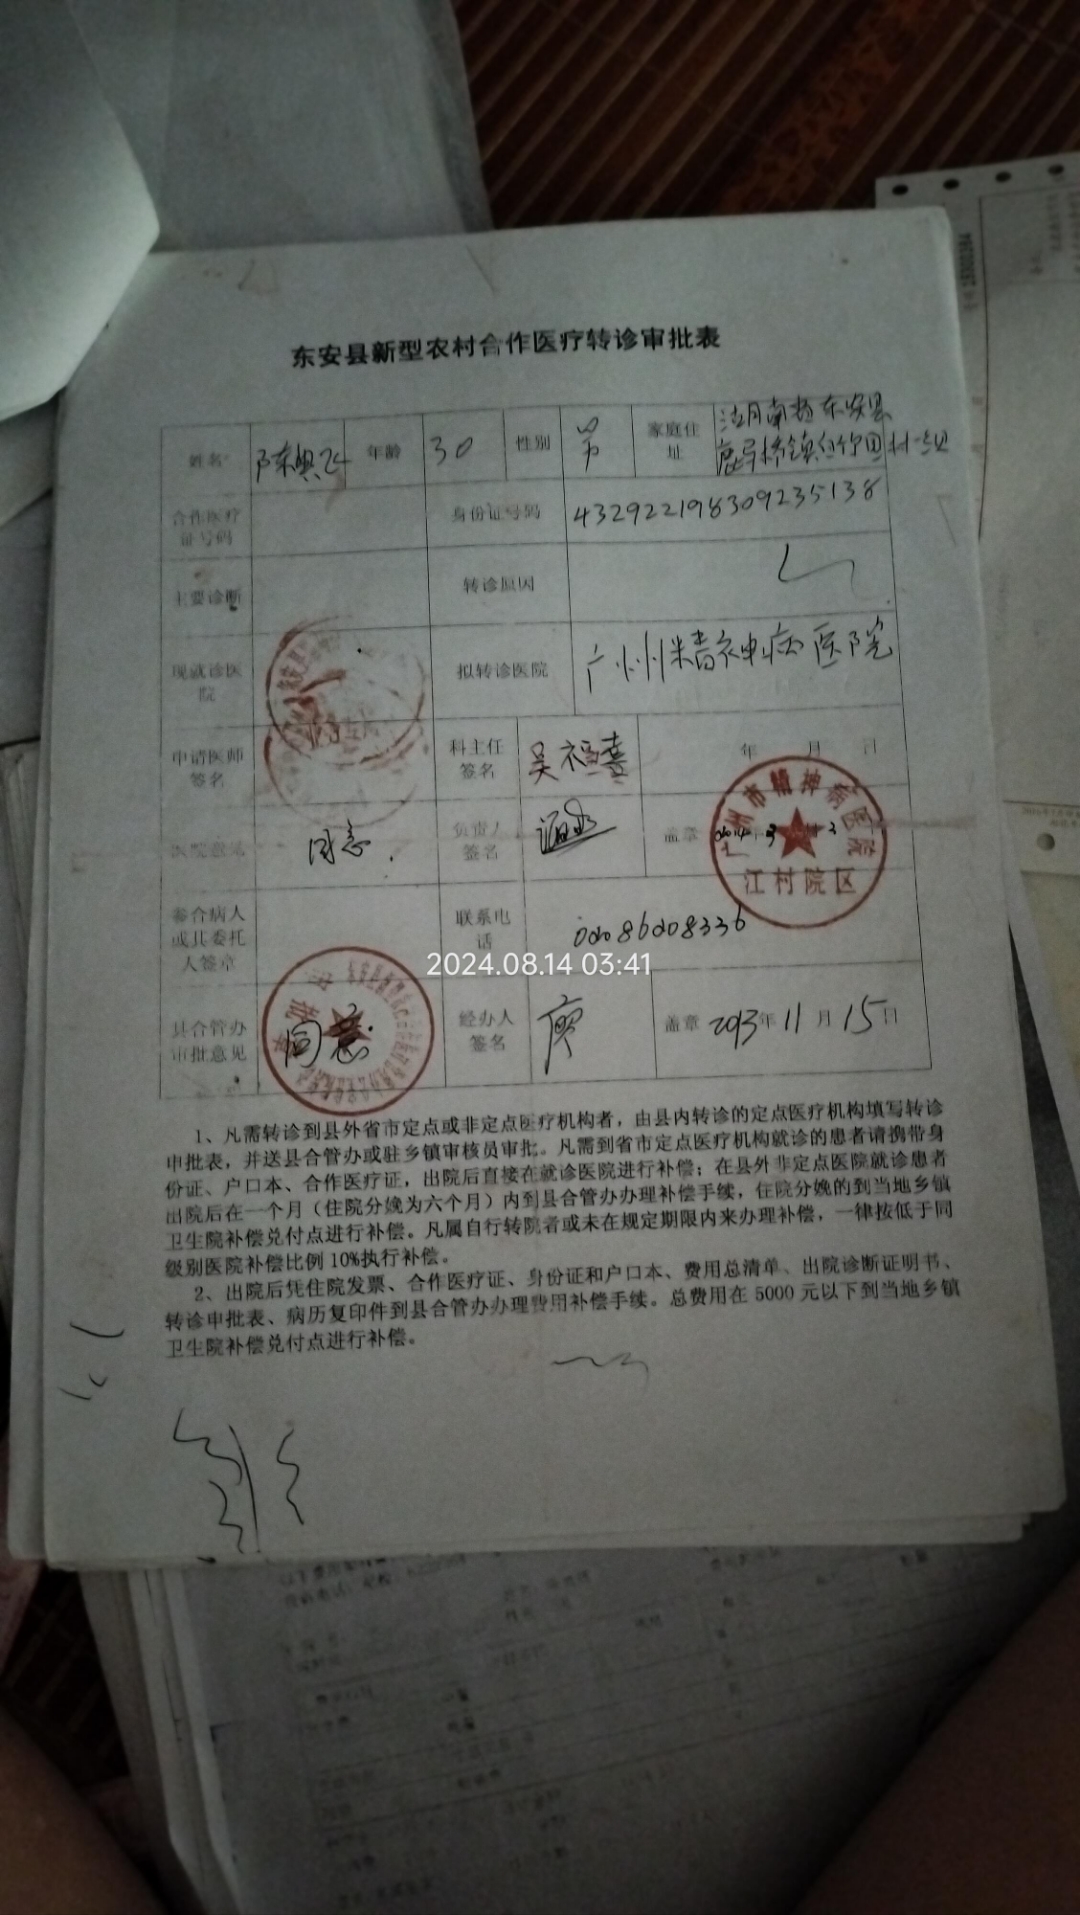 东安县新型农村合作医疗转诊审批表
姓名 陈奥飞 年龄 30 性别 男 家庭住址 湖南省东安县
村
合作医疗证号码 身份证号码 432922198309235138
主要诊断 转诊原因
现就诊医院 拟转诊医院 广州精神病医院
申请医师签名 科主任签名 吴福喜 年 月 日
医院意见 同意. 负责人签名 盖章
广州市精神病医院
江村院区
参合病人或其委托人签章 联系电话
2024.08.14 03:41
县合管办审批意见 同意 经办人签名 廖 盖章 2013年11月15日
1、凡需转诊到县外省市定点或非定点医疗机构者，由县内转诊的定点医疗机构填写转诊
申批表，并送县合管办或驻乡镇审核员审批。凡需到省市定点医疗机构就诊的患者请携带身
份证、户口本、合作医疗证，出院后直接在就诊医院进行补偿；在县外非定点医院就诊患者
出院后在一个月（住院分娩为六个月）内到县合管办办理补偿手续，住院分娩的到当地乡镇
卫生院补偿兑付点进行补偿。凡属自行转院者或未在规定期限内来办理补偿，一律按低于同
级别医院补偿比例10%执行补偿。
2、出院后凭住院发票、合作医疗证、身份证和户口本、费用总清单、出院诊断证明书、
转诊申批表、病历复印件到县合管办办理费用补偿手续。总费用在 5000 元以下到当地乡镇
卫生院补偿兑付点进行补偿。